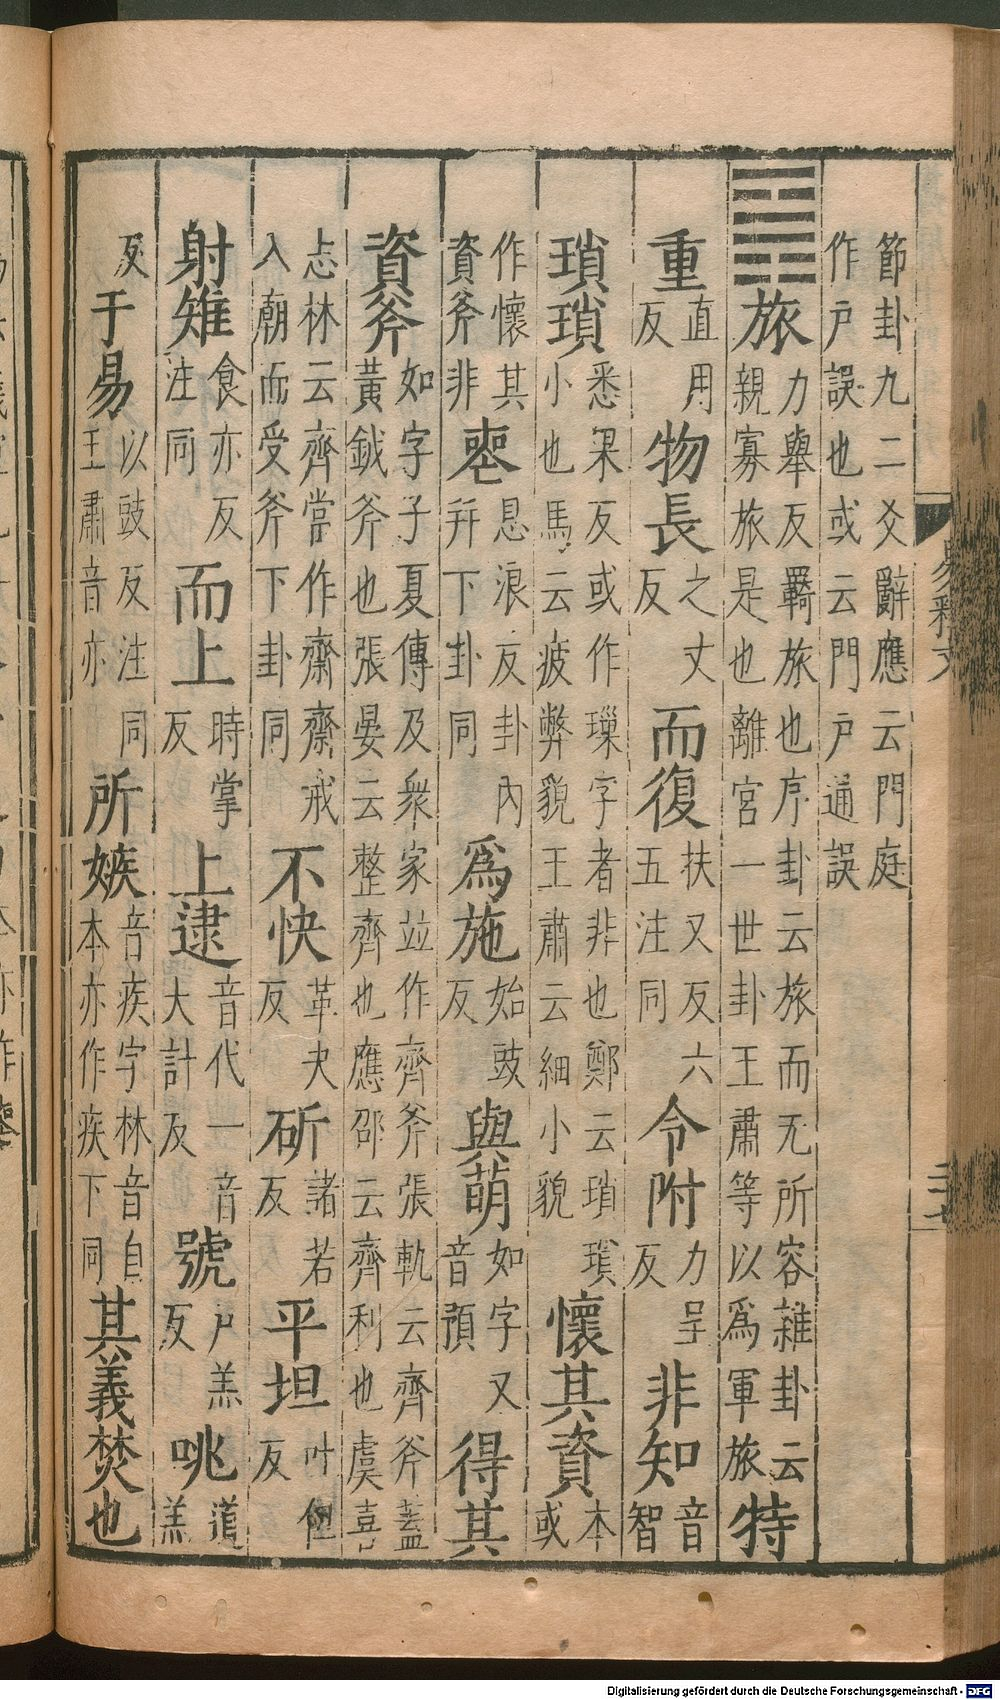 節卦九二爻辭應云門庭
作戶誤也或云門戶通誤
䷷旅力舉反羇旅也序卦云旅而无所容雜卦云
親寡旅是也離宮一世卦王肅等以爲軍旅特
重直用反物長之丈反而復扶又反六五注同令附力呈反非知音智
瑣瑣悉果反或作璅字者非也鄭云瑣瑣小也馬云疲弊貌王肅云細小貌懷其資本或
作懷其資斧非喪息浪反卦內幷下卦同爲施始豉反與萌如字又音預得其
資斧如字子夏傳及衆家竝作齊斧張軌云齊斧蓋黃鉞斧也張晏云整齊也應邵云齊利也虞喜
志林云齊當作齋齋戒入廟而受斧下卦同不快革夬反斫諸若反平坦吐但反
射雉食亦反注同而上時掌反上逮音代一音大計反號戶羔反咷道羔
反于易以豉反注同王肅音亦所嫉音疾字林音自本亦作疾下同其義焚也
易釋文
Digitalisierung gefördert durch die Deutsche Forschungsgemeinschaft - DFG